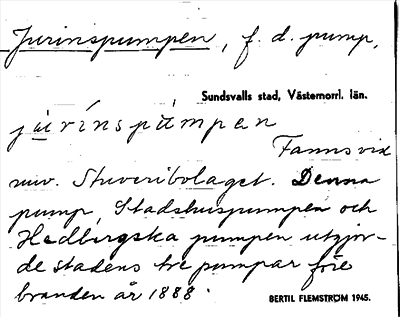 Jurinspumpen, f. d. pump,
Sundsvalls stad, Västernorrl. län.
jɯ́rínspúmpen
Fanns vid
nuv. Stuveribolaget. Denna
pump, Stadshuspumpen och
Hedbergska pumpen utgjor-
de stadens tre pumpar före
branden år 1888.
BERTIL FLEMSTRÖM 1945.